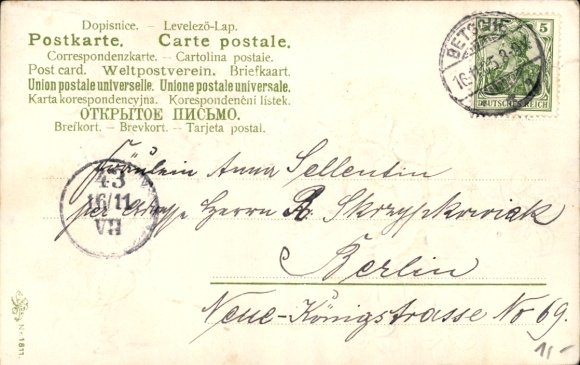 Dopisnice. – Levelező-Lap.
Postkarte. Carte postale.
Correspondenzkarte. – Cartolina postale.
Post card. Weltpostverein. Briefkaart.
Union postale universelle. Unione postale universale.
Karta korespondencyjna. Korespondenční lístek.
ОТКРЫТОЕ ПИСЬМО.
Brefkort. – Brevkort. – Tarjeta postal.
BETSCHE
16.11.05
5
DEUTSCHES REICH
Fräulein Anna Sellentin
43
16/11
VII
per Herrn Skrzypkowiak
Berlin
Neue-Königstrasse No 69.
No 1811.